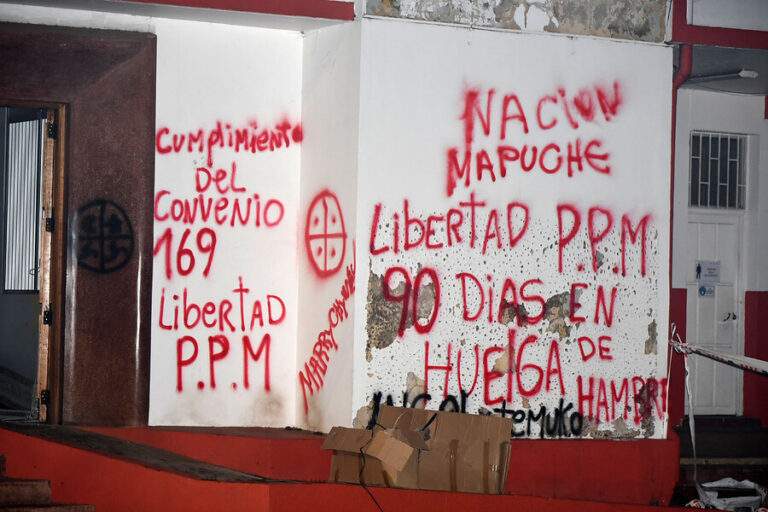 Cumplimiento
Del
Convenio
169
Libertad
P.P.M
MARRYCHIWEU
NACION
MAPUCHE
Libertad P.P.M
90 DIAS EN
HUELGA DE
HAMBRE
temuko